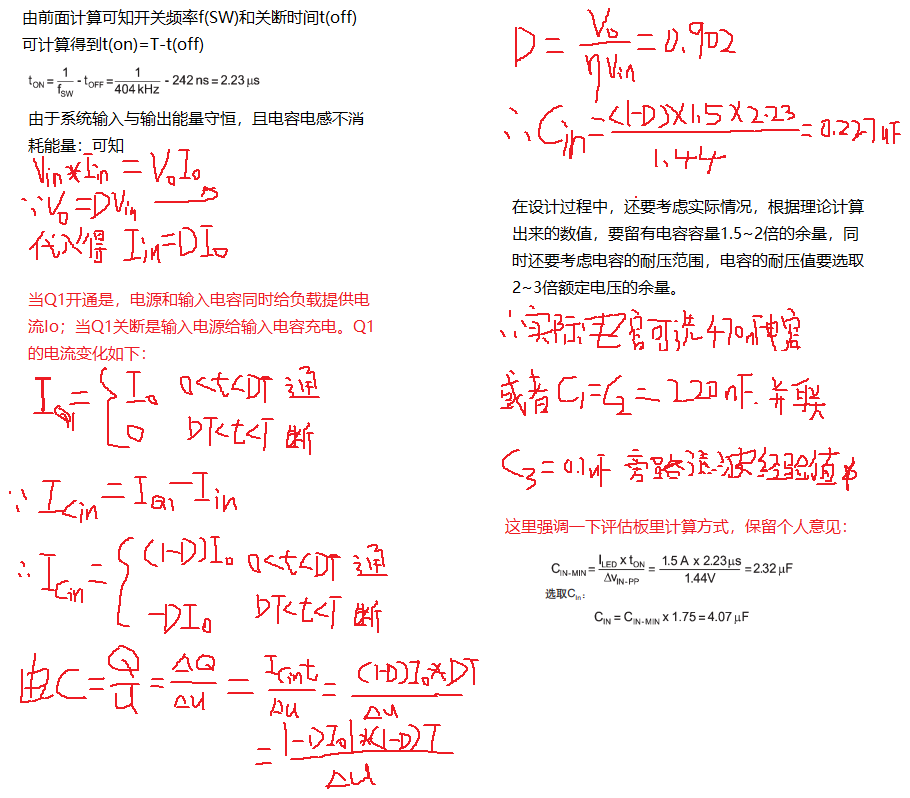 由前面计算可知开关频率f(SW)和关断时间t(off)
可计算得到t(on)=T-t(off)
tON = 1/fSW - tOFF = 1/404 kHz - 242 ns = 2.23 μs
由于系统输入与输出能量守恒，且电容电感不消
耗能量：可知
Vin*Iin = VoIo
∵Vo=DVin
代入得 Iin=DIo
当Q1开通是，电源和输入电容同时给负载提供电
流Io；当Q1关断是输入电源给输入电容充电。Q1
的电流变化如下：
IQ1= { Io 0<t<DT 通
0 DT<t<T 断
∵ ICin = IQ1-Iin
∴ ICin = { (1-D)Io 0<t<DT 通
-DIo DT<t<T 断
由C=Q/u=ΔQ/Δu=ICint/Δu=(1-D)Io*DT/Δu
=|-DIo|*(1-D)T/Δu
D=Vo/ηVin=0.902
∴Cin=(1-D)×1.5×2.23/1.44=0.227uF
在设计过程中，还要考虑实际情况，根据理论计算
出来的数值，要留有电容容量1.5~2倍的余量，同
时还要考虑电容的耐压范围，电容的耐压值要选取
2~3倍额定电压的余量。
∴实际电容可选470nF电容
或者C1=C2=220nF 并联
C3=0.1uF 旁路滤波经验值
这里强调一下评估板里计算方式，保留个人意见：
CIN-MIN = ILED x tON/ΔvIN-PP = 1.5 A x 2.23 μs/1.44V = 2.32 μF
选取CIn：
CIN = CIN-MIN x 1.75 = 4.07 μF